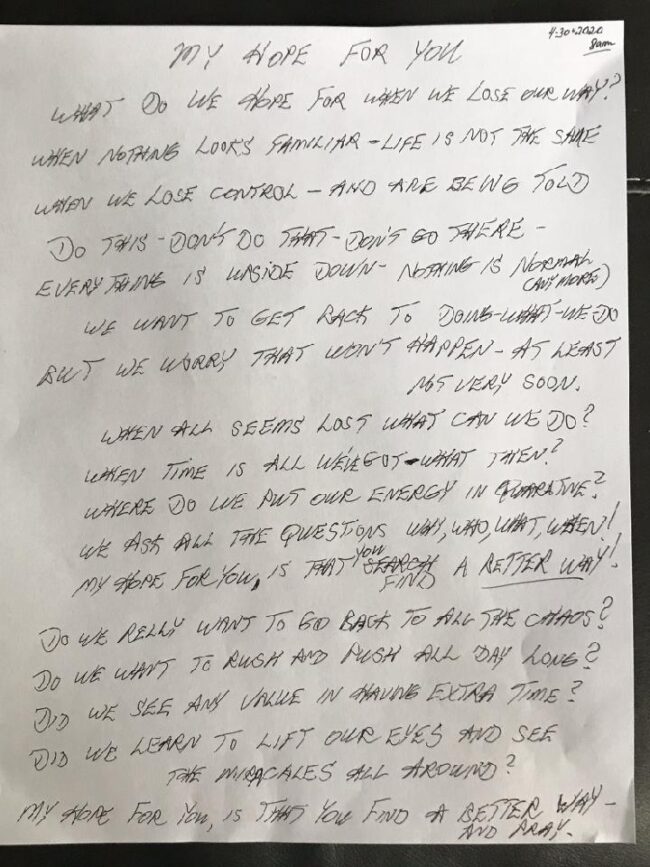 4-30-2020
8am
MY HOPE FOR YOU
WHAT DO WE HOPE FOR WHEN WE LOSE OUR WAY?
WHEN NOTHING LOOKS FAMILIAR - LIFE IS NOT THE SAME
WHEN WE LOSE CONTROL - AND ARE BEING TOLD
DO THIS - DON'T DO THAT - DON'T GO THERE -
EVERYTHING IS UPSIDE DOWN - NOTHING IS NORMAL
(ANYMORE)
WE WANT TO GET BACK TO DOING-WHAT-WE-DO
BUT WE WORRY THAT WON'T HAPPEN - AT LEAST
NOT VERY SOON.
WHEN ALL SEEMS LOST WHAT CAN WE DO?
WHEN TIME IS ALL WE'VE GOT - WHAT THEN?
WHERE DO WE PUT OUR ENERGY IN?
WE ASK ALL THE QUESTIONS WHY, WHO, WHAT, WHEN!
MY HOPE FOR YOU, IS THAT YOU SEARCH A BETTER WAY!
FIND
DO WE RELLY WANT TO GO BACK TO ALL THE CHAOS?
DO WE WANT TO RUSH AND PUSH ALL DAY LONG?
DID WE SEE ANY VALUE IN HAVING EXTRA TIME?
DID WE LEARN TO LIFT OUR EYES AND SEE
THE MIRACALES ALL AROUND?
MY HOPE FOR YOU, IS THAT YOU FIND A BETTER WAY -
AND PRAY.